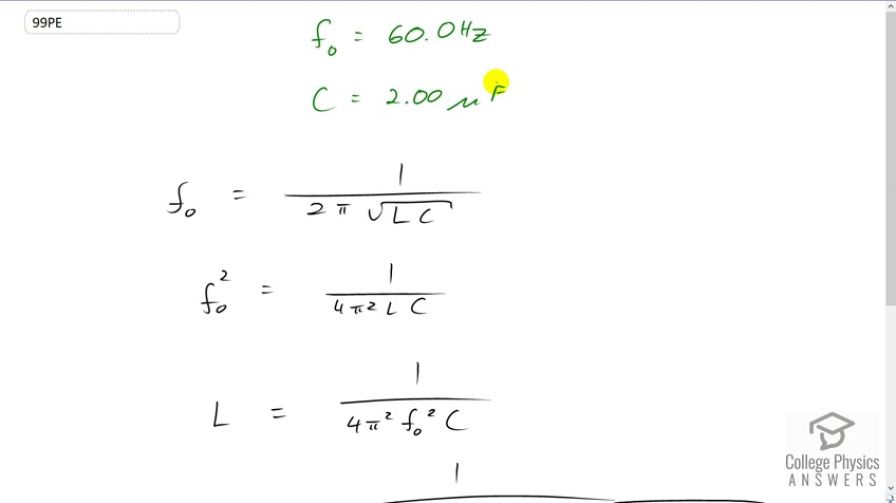 99PE
f₀ = 60.0 Hz
C = 2.00 μF
f₀ = 1 / 2π √LC
f₀² = 1 / 4π² L C
L = 1 / 4π² f₀² C
1
College Physics
ANSWERS